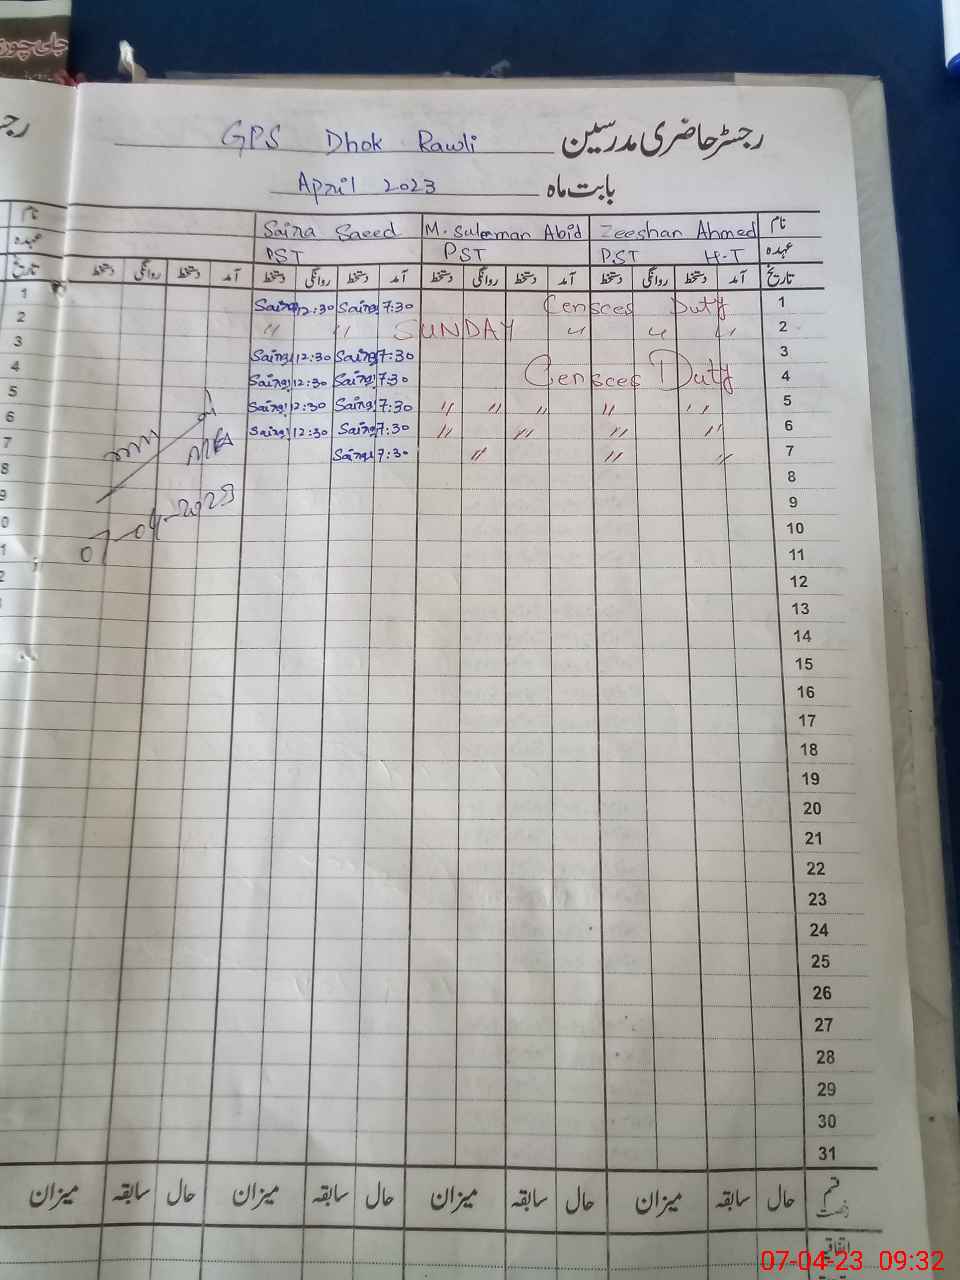 جاں چوز
رجسٹر حاضری مدرسین GPS Dhok Rawli
بابت ماہ April 2023
نام Zeeshan Ahmed M. Suleman Abid Saira Saeed نام
عہدہ H-T PST PST PST عہدہ
تاریخ آمد دستخط روانگی دستخط آمد دستخط روانگی دستخط آمد دستخط روانگی دستخط آمد دستخط روانگی دستخط تاریخ
1 Censces Duty 7:30 Saira 12:30 Saira 1
2 " " " SUNDAY " " 2
3 7:30 Saira 12:30 Saira 3
4 Censces Duty 7:30 Saira 12:30 Saira 4
5 " " " " " 7:30 Saira 12:30 Saira 5
6 " " " " 7:30 Saira 12:30 Saira 6
7 " " " 7:30 Saira 7
8 8
9 9
10 0
11 1
12 2
13
14
15
16
17
18
19
20
21
22
23
24
25
26
27
28
29
30
31
MEA
07-04-2023
قسم رخصت حال سابقہ میزان حال سابقہ میزان حال سابقہ میزان حال سابقہ میزان
اتفاقیہ
07-04-23 09:32